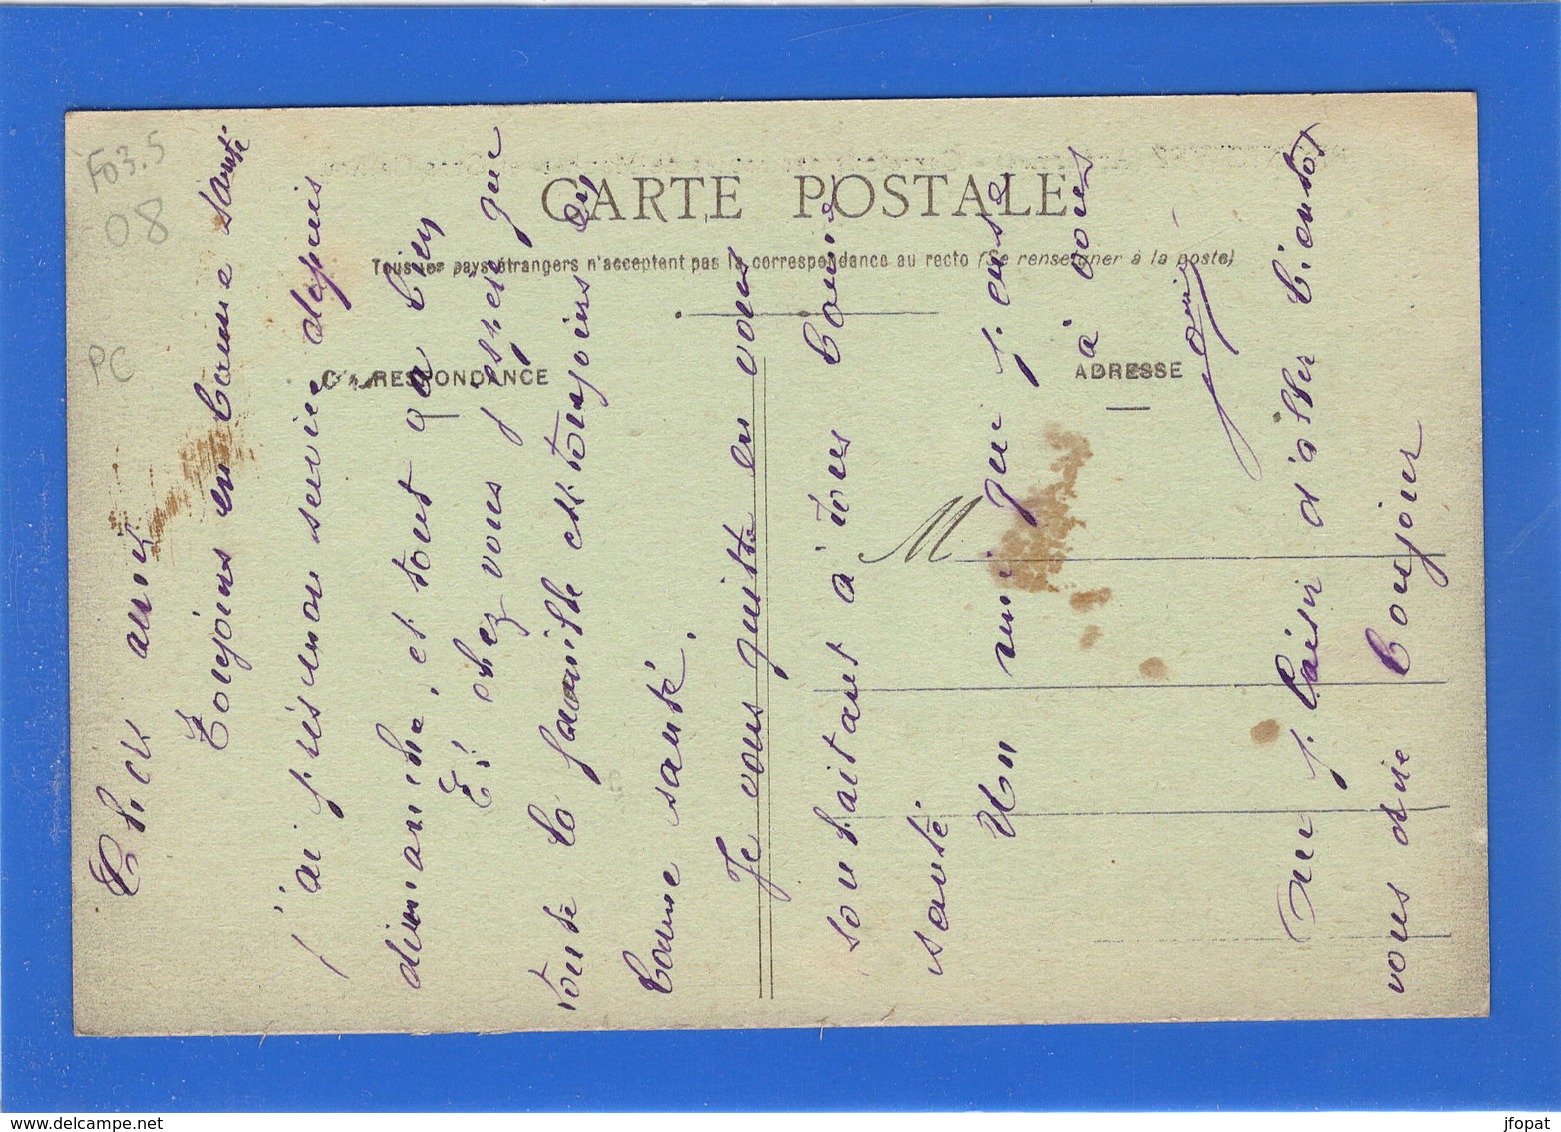 Fo3.5
08
PC
CARTE POSTALE
Tous les pays étrangers n'acceptent pas la correspondance au recto (Se renseigner à la poste)
CORRESPONDANCE
ADRESSE
M
Chers amis
Toujours en bonne santé
j'ai pris mon service depuis
dimanche, et tout va bien
Et chez vous j'espère que
toute la famille est toujours en
bonne santé.
Je vous quitte en vous
souhaitant à tous bonne
santé
Un ami qui pense
à vous
Au plaisir d'aller bientôt
vous dire bonjour
www.delcampe.net
jfopat